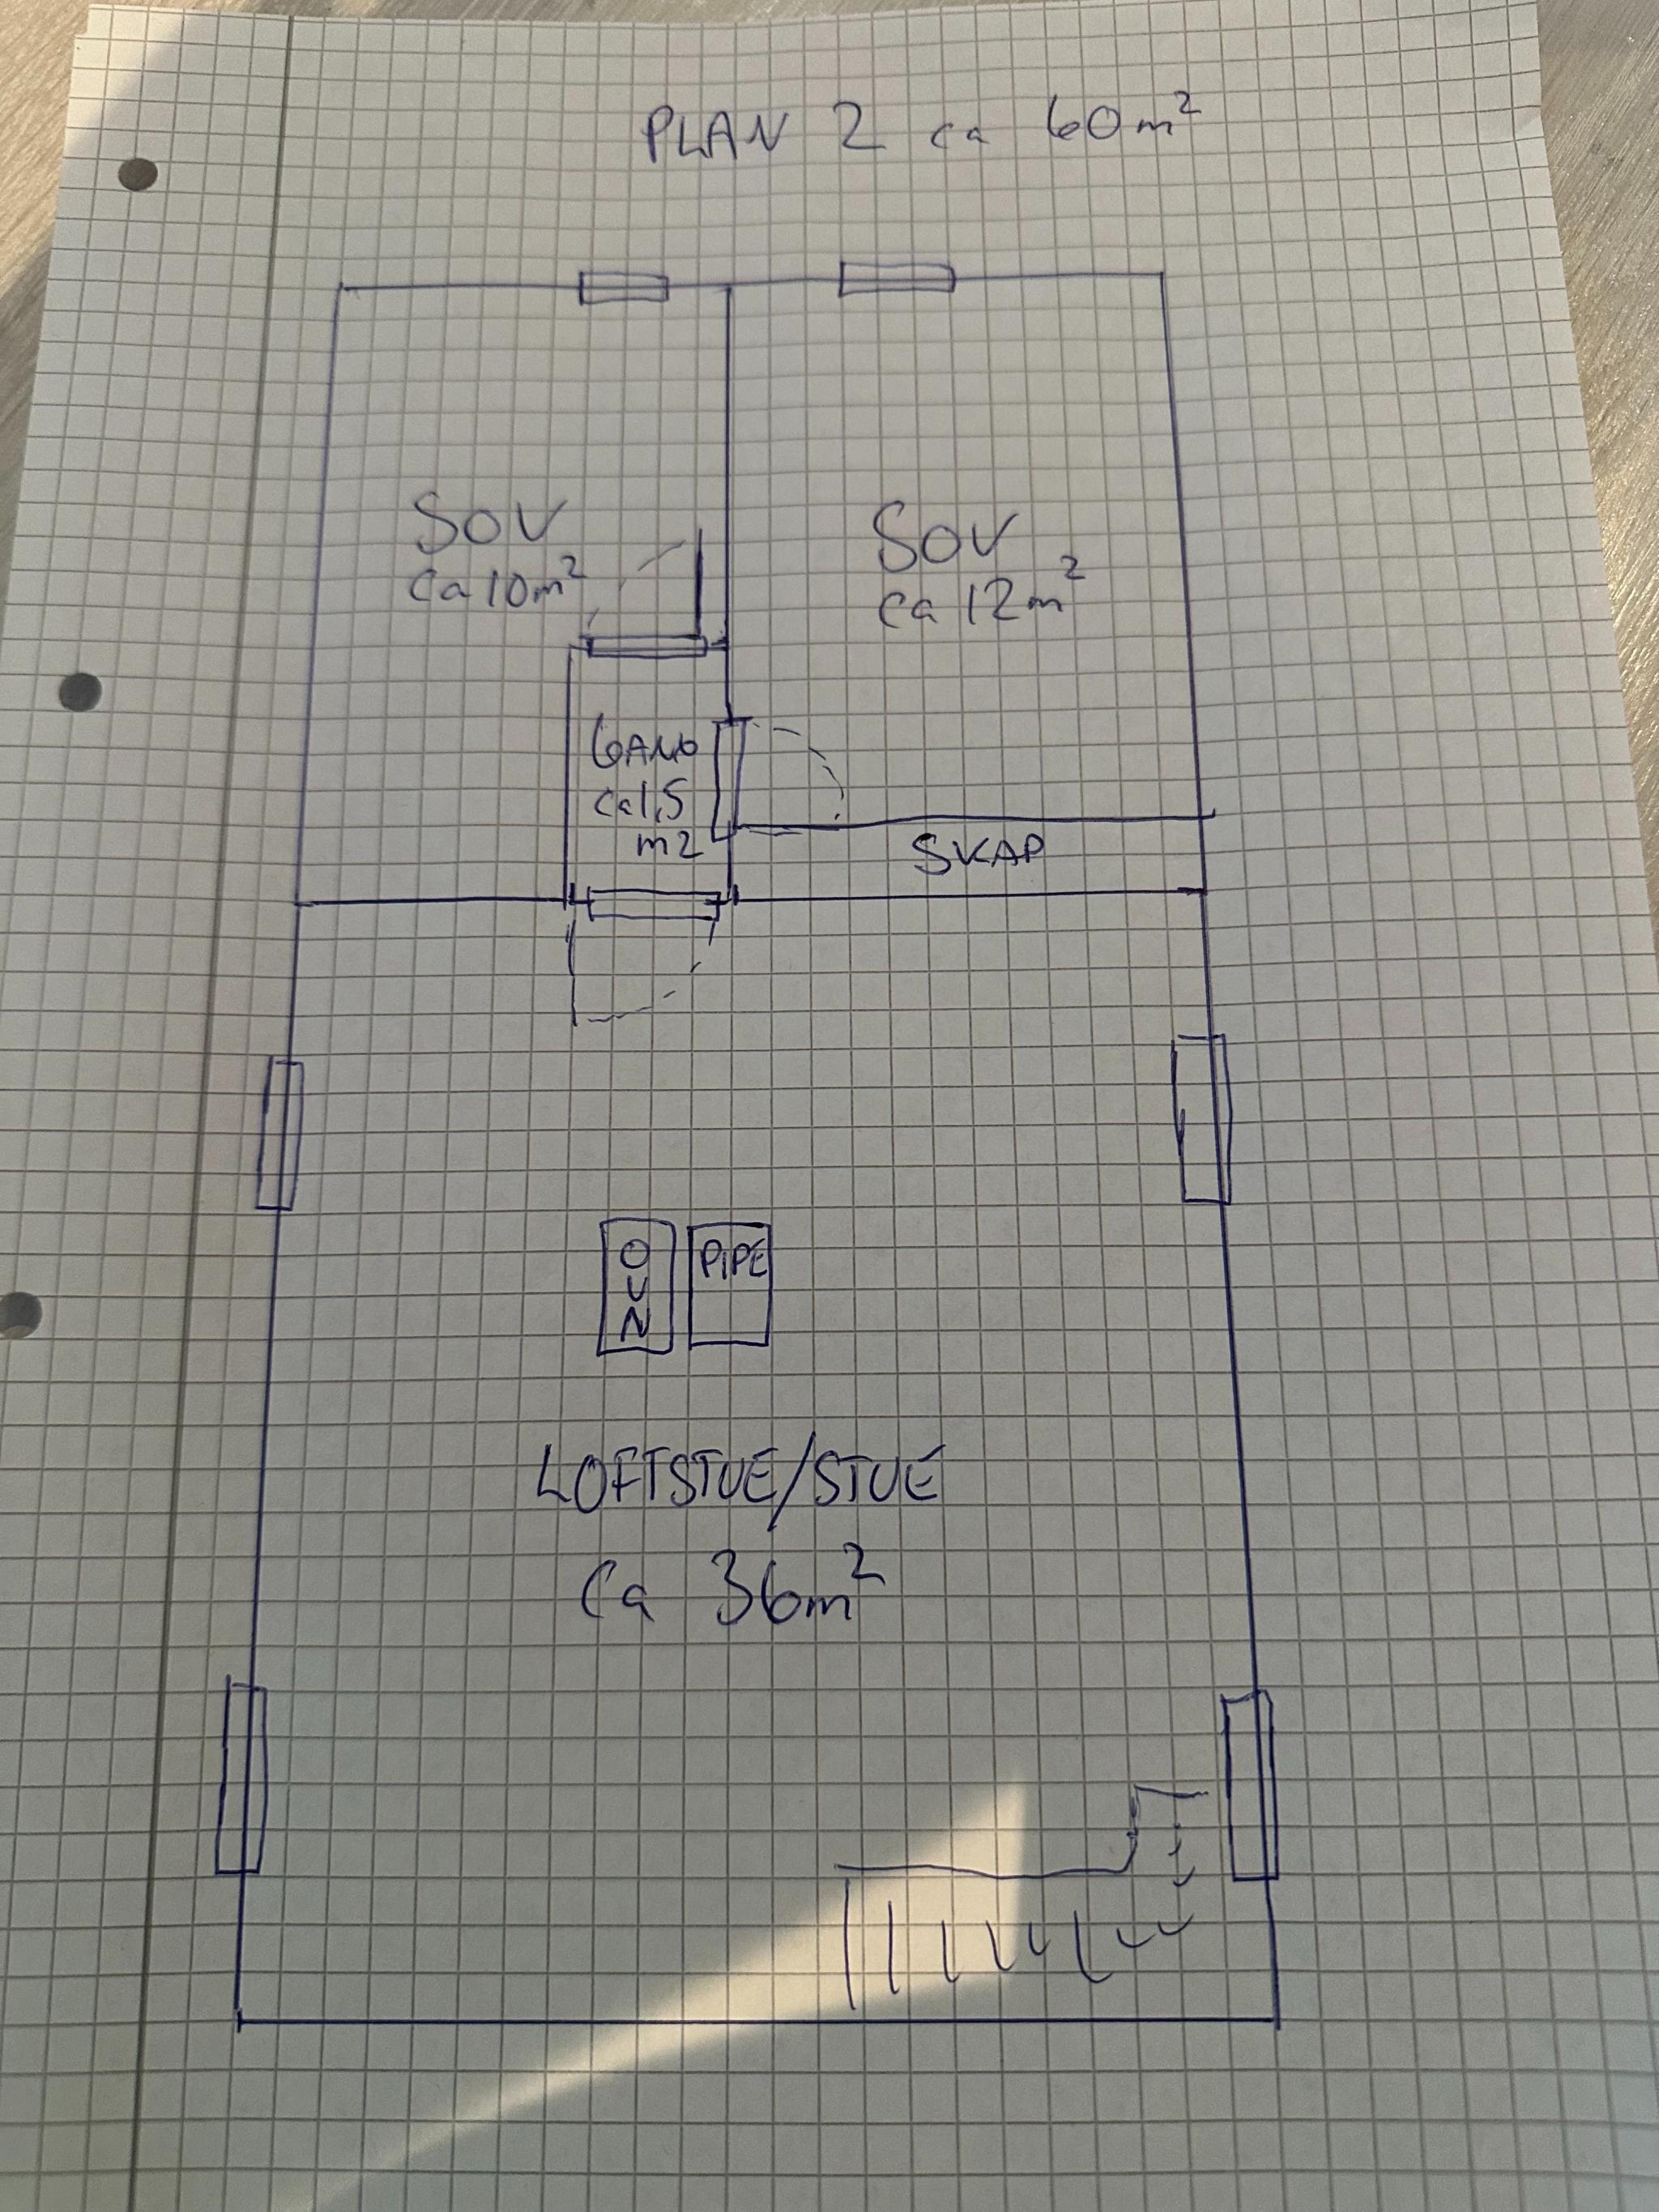 PLAN 2 ca 60m²
SOV
ca 10m²
SOV
ca 12m²
GANG
ca 1,5
m2
SKAP
OVN
PIPE
LOFTSTUE/STUE
Ca 36m²